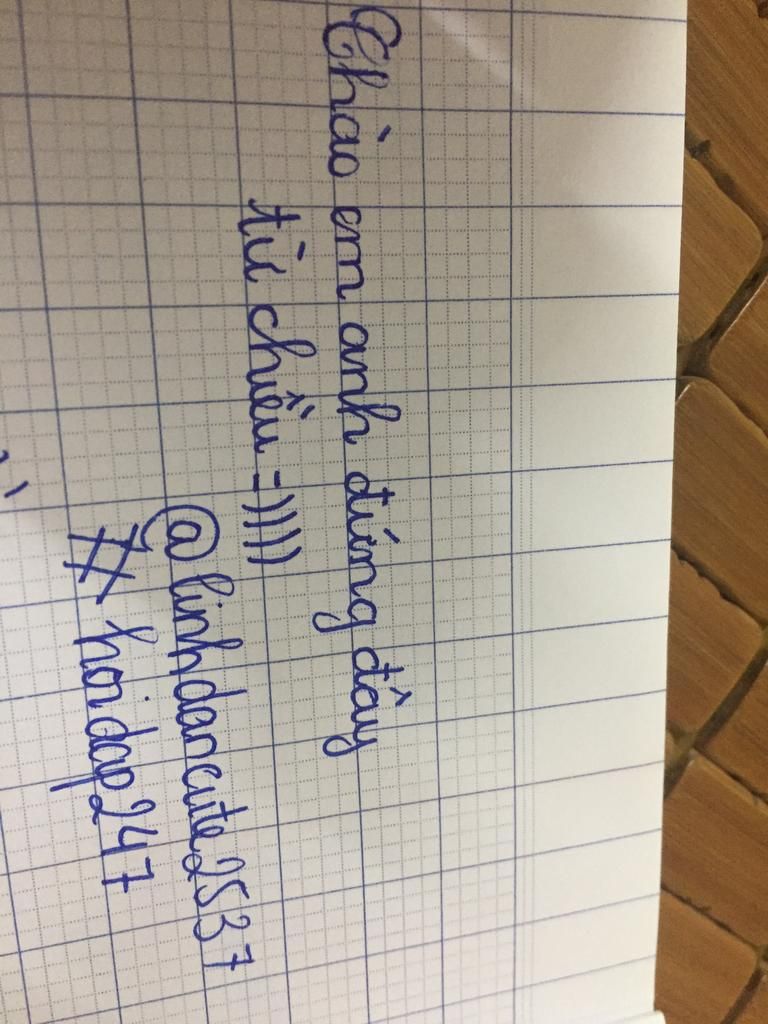 Chào em anh đứng đây
từ chiều =))))
@linhdancute2537
# hoidap247